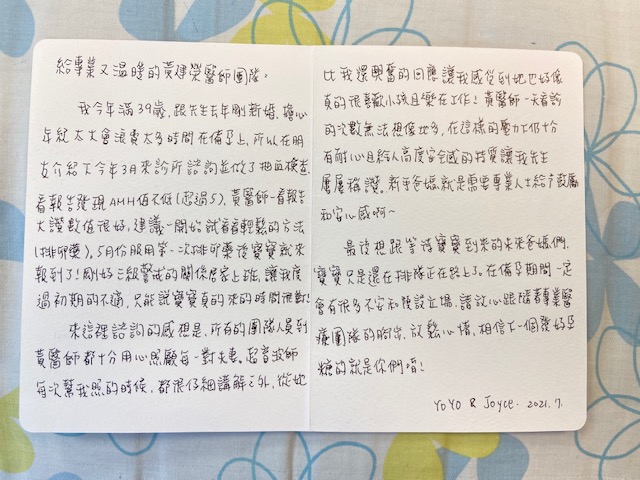 給專業又溫暖的黃建榮醫師團隊：
我今年滿39歲，跟先生去年剛新婚，擔心
年紀太大會浪費太多時間在備孕上，所以在朋
友介紹下今年3月來診所諮詢並做了抽血檢查，
看報告發現AMH值不低(超過5)，黃醫師一看報告
大讚數值很好，建議一開始試看看輕鬆的方法
(排卵藥)，5月份服用第一次排卵藥後寶寶就來
報到了！剛好三級警戒的關係居家上班，讓我度
過初期的不適，只能說寶寶真的來的時間很勤！
來這裡諮詢的感想是，所有的團隊人員到
黃醫師都十分用心照顧每一對夫妻，超音波師
每次幫我照的時候，都很仔細講解之外，從她
比我還興奮的回應讓我感從到她也好像
真的很喜歡小孩且樂在工作！黃醫師一天看診
的次數無法想像地多，在這樣的壓力下仍十分
有耐心且給人高度安全感的特質讓我先生
屢屢稱讚，新手爸媽就是需要專業人士給予鼓勵
和安心感啊～
最後想跟等待寶寶到來的未來爸媽們，
寶寶只是還在排隊正在路上了。在備孕期間一定
會有很多不安和預設立場，請放心跟隨著專業醫
療團隊的腳步，放鬆心情，相信下一個發好孕
糖的就是你們唷！
YOYO & Joyce. 2021.7.